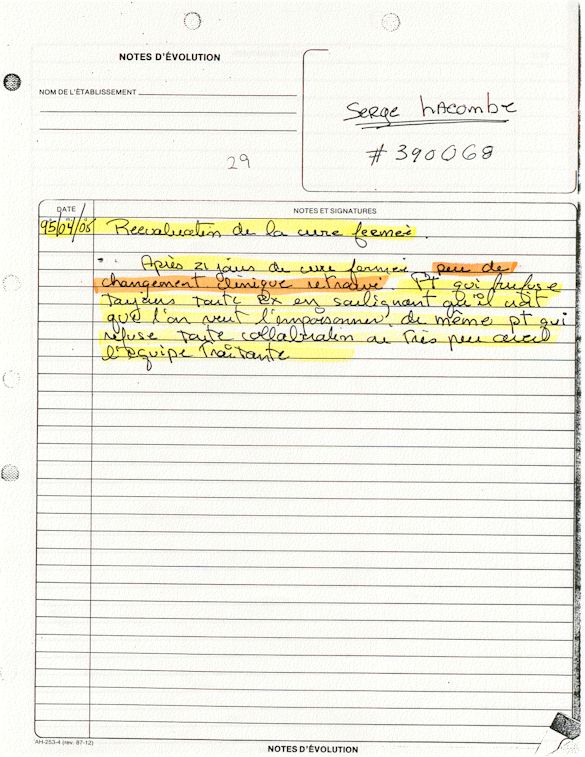 NOTES D'ÉVOLUTION
NOM DE L'ÉTABLISSEMENT
Serge Lacombe
# 390068
29
DATE
NOTES ET SIGNATURES
95/04/05 Réévaluation de la cure fermée.
Après 21 jours de cure fermée, peu de
changement clinique retrouvé. Pt qui refuse
toujours toute Rx en soulignant qu'il croit
que l'on veut l'empoisonner, de même pt qui
refuse toute collaboration ou très peu avec
l'équipe traitante
AH-253-4 (rev. 87-12)
NOTES D'ÉVOLUTION